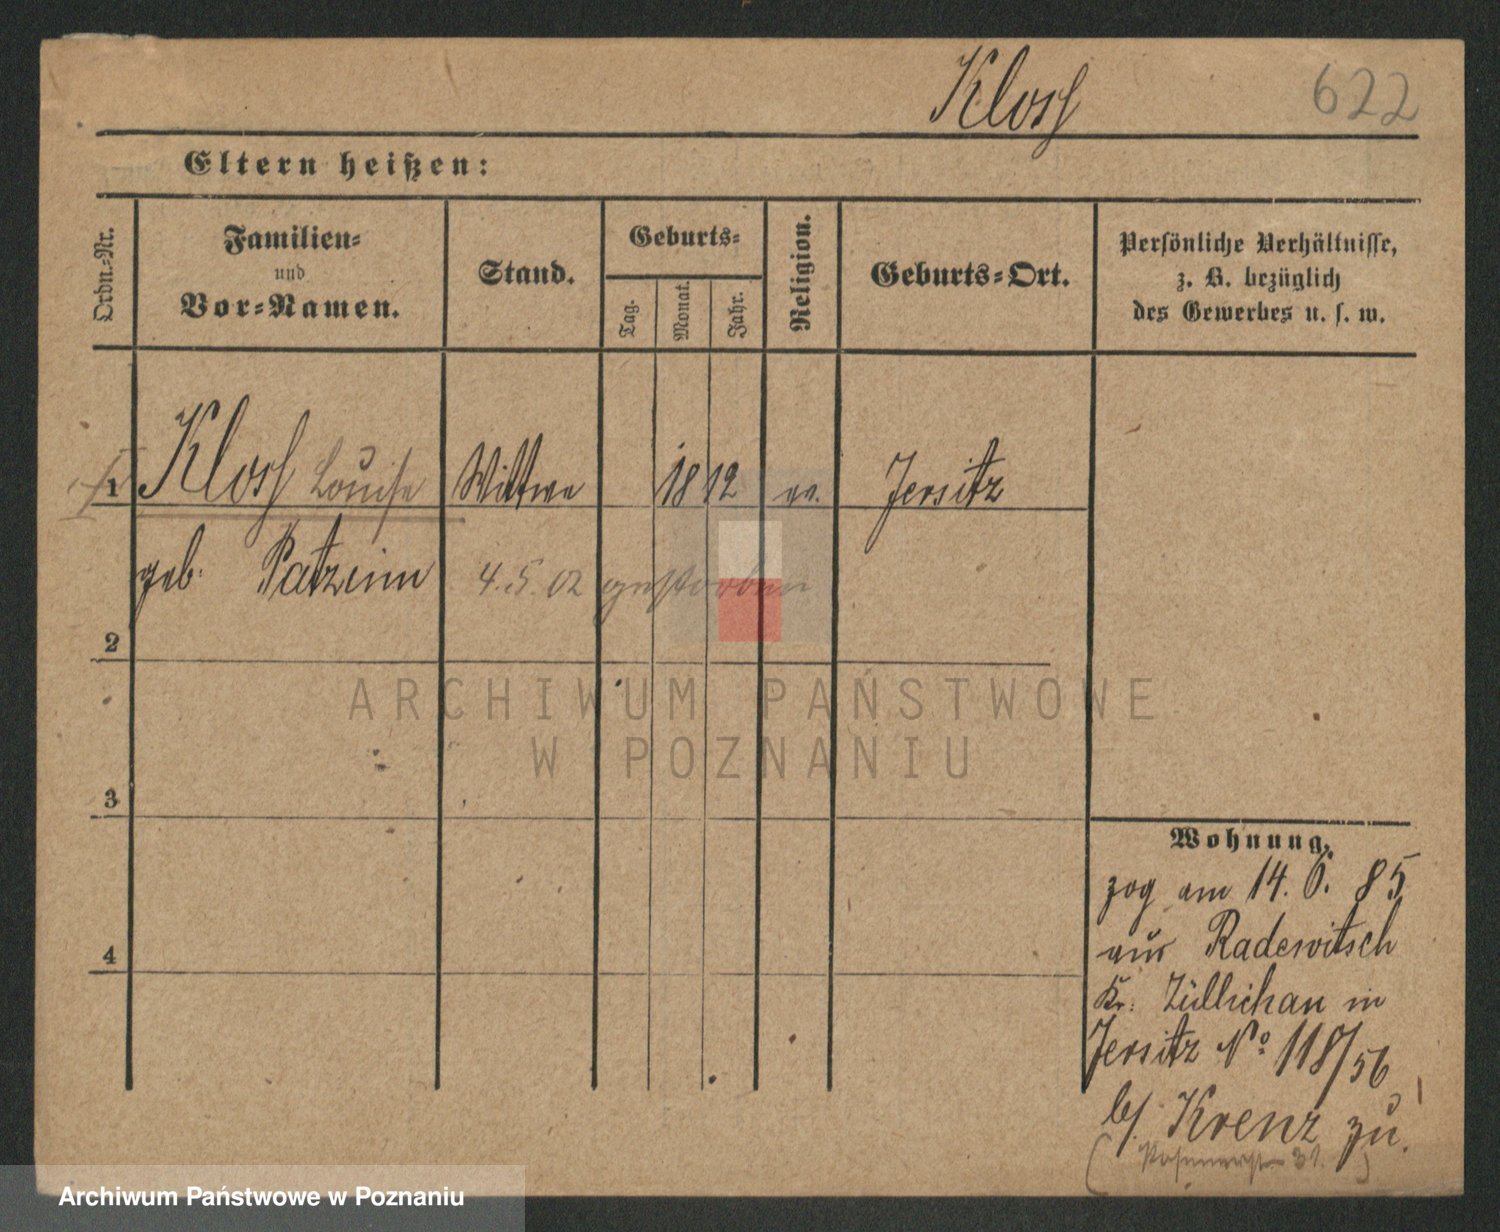 Klosß 622
Eltern heißen:
Ordn.-Nr.
Familien-
und
Vor-Namen.
Stand.
Geburts-
Tag.
Monat.
Jahr.
Religion.
Geburts-Ort.
Persönliche Verhältnisse,
z. B. bezüglich
des Gewerbes u. s. w.
1 Klosß Louise Wittwe 1812 ev. Jersitz
geb. Patzinn 4.5.02 gestorben
2
ARCHIWUM PAŃSTWOWE
W POZNANIU
3
Wohnung.
zog am 14. 6. 85
aus Radewitsch
Kr. Züllichau in
Jersitz No 118/56
b/ Krenz zu.
4
Archiwum Państwowe w Poznaniu